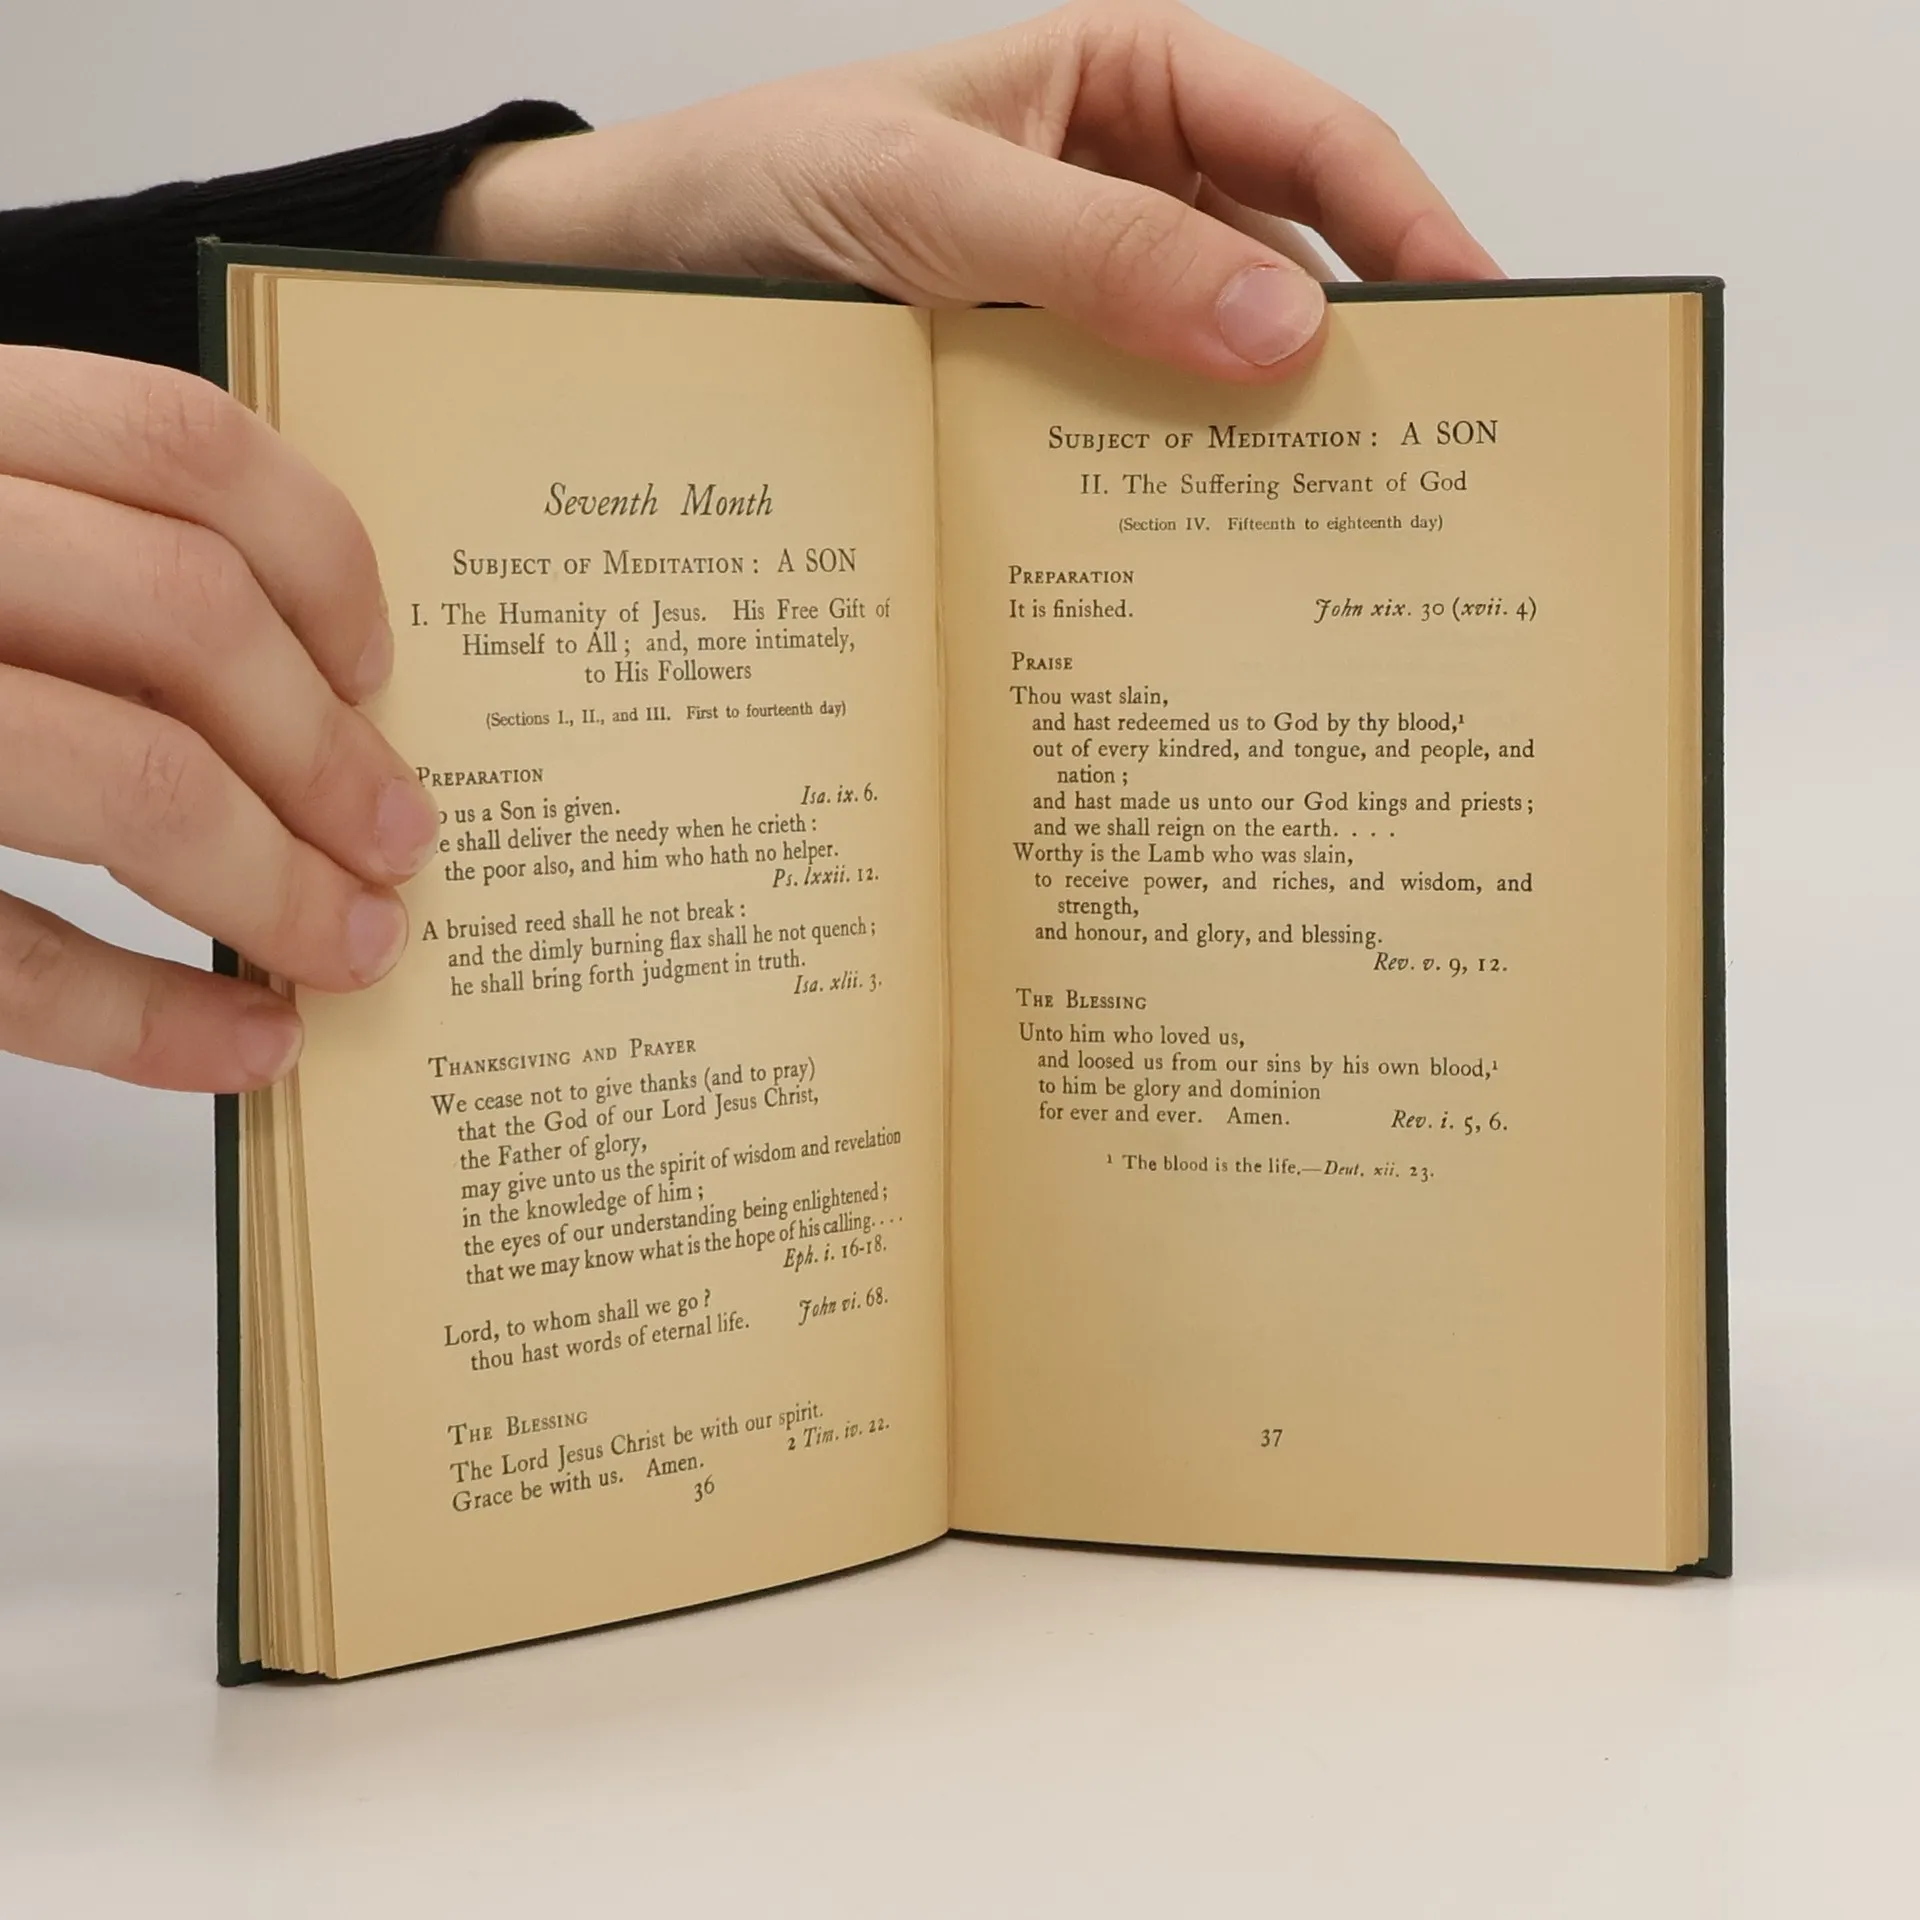 Seventh Month
SUBJECT OF MEDITATION: A SON
I. The Humanity of Jesus. His Free Gift of
Himself to All; and, more intimately,
to His Followers
(Sections I., II., and III. First to fourteenth day)
PREPARATION
us a Son is given. Isa. ix. 6.
shall deliver the needy when he crieth:
the poor also, and him who hath no helper.
Ps. lxxii. 12.
A bruised reed shall he not break:
and the dimly burning flax shall he not quench;
he shall bring forth judgment in truth.
Isa. xlii. 3.
THANKSGIVING AND PRAYER
We cease not to give thanks (and to pray)
that the God of our Lord Jesus Christ,
the Father of glory,
may give unto us the spirit of wisdom and revelation
in the knowledge of him;
the eyes of our understanding being enlightened;
that we may know what is the hope of his calling....
Eph. i. 16-18.
Lord, to whom shall we go?
thou hast words of eternal life. John vi. 68.
THE BLESSING
The Lord Jesus Christ be with our spirit.
Grace be with us. Amen. 2 Tim. iv. 22.
36
SUBJECT OF MEDITATION: A SON
II. The Suffering Servant of God
(Section IV. Fifteenth to eighteenth day)
PREPARATION
It is finished. John xix. 30 (xvii. 4)
PRAISE
Thou wast slain,
and hast redeemed us to God by thy blood,¹
out of every kindred, and tongue, and people, and
nation;
and hast made us unto our God kings and priests;
and we shall reign on the earth. . . .
Worthy is the Lamb who was slain,
to receive power, and riches, and wisdom, and
strength,
and honour, and glory, and blessing.
Rev. v. 9, 12.
THE BLESSING
Unto him who loved us,
and loosed us from our sins by his own blood,¹
to him be glory and dominion
for ever and ever. Amen. Rev. i. 5, 6.
¹ The blood is the life.—Deut. xii. 23.
37